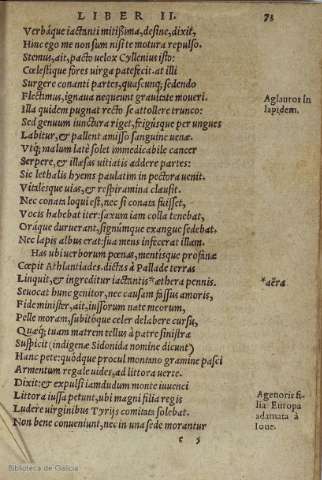 LIBER II. 73
Verbáque iactanti mitißima, desine, dixit,
Hinc ego me non sum nisi te motura repulso.
Stemus, ait, pacto uelox Cyllenius isto:
Cœlestique fores uirga patefecit. at illi
Surgere conanti partes, quascunq; sedendo
Flectimus, ignaua nequeunt grauitate moueri.
Aglauros in
lapidem.
Illa quidem pugnat recto se attollere trunco:
Sed genuum iunctura riget, frigúsque per ungues
Labitur, & pallent amisso sanguine uenæ.
Vtq; malum latè solet immedicabile cancer
Serpere, & illæsas uitiatis addere partes:
Sic lethalis hyems paulatim in pectora uenit.
Vitalésque uias, & respiramina clausit.
Nec conata loqui est, nec si conata fuisset,
Vocis habebat iter: saxum iam colla tenebat,
Oráque duruerant, signúmque exangue sedebat.
Nec lapis albus erat: sua mens infecerat illam.
Has ubi uerborum pœnas, mentisque profanæ
Cœpit Athlantiades. dictas à Pallade terras
Linquit, & ingreditur iactantis *æthera pennis.
*aëra
Seuocat hunc genitor, nec causam fassus amoris,
Fide minister, ait, iussorum nate meorum,
Pelle moram, subitóque celer delabere cursu,
Quæq; tuam matrem tellus à patre sinistra
Suspicit (indigenæ Sidonida nomine dicunt)
Hanc pete: quódque procul montano gramine pasci
Armentum regale uides, ad littora uerte.
Dixit: & expulsi iamdudum monte iuuenci
Littora iussa petunt, ubi magni filia regis
Agenoris fi-
lia Europa
adamata à
Ioue.
Ludere uirginibus Tyrijs comitata solebat.
Non bene conueniunt, nec in una sede morantur
c 5
Biblioteca de Galicia